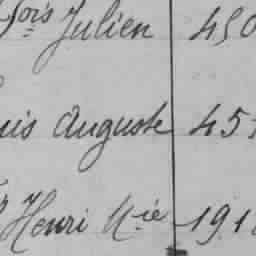 çois Julien 450
uis Auguste 45
Henri Mie 191